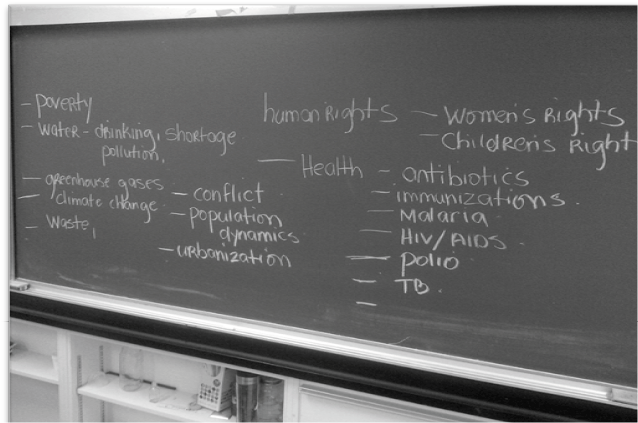 - poverty
- water - drinking, shortage
pollution,
- greenhouse gases
- climate change
- Waste,
- conflict
- population
dynamics
- urbanization
human Rights - Women's Rights
- Children's Right
- Health - antibiotics
- immunizations.
- Malaria
- HIV/AIDS
- polio
- TB.
-